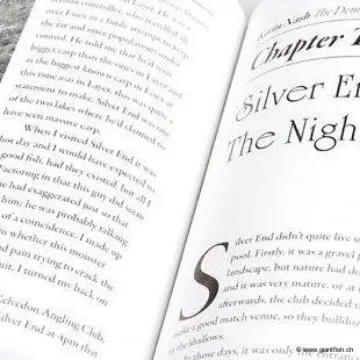 in Layer. He has
over Essex in a futile attempt to keep
the rat and mice populations under
control. He told me that he'd seen
bigger carp than the ones in Layer and
as the biggest known carp in Essex at
this time was in Layer, this was quite a
statement to make. Silver End was one
of the two lakes where he'd claimed to
have seen massive carp.
When I visited Silver End it was
hot day and I would have expected to
good fish, had they existed, but all I
Factoring in that this guy did seem
he had exaggerated just so that
him; he was probably talking
of a coincidence. I made up
in whether this monster
and pain trying to crack the
out. I turned my back on
Kelvedon Angling Club.
Silver End at 4pm that
Kevin Nash The Demon
Chapter T
Silver En
The Nigh
Silver End didn't quite live u
pool. Firstly, it was a gravel p
landscape, but nature had do
and it was very mature, or at
afterwards, the club decided
make a good match venue, so they bulldoz
to the shallows.
In those days, it was only the
© www.giantfish.ch